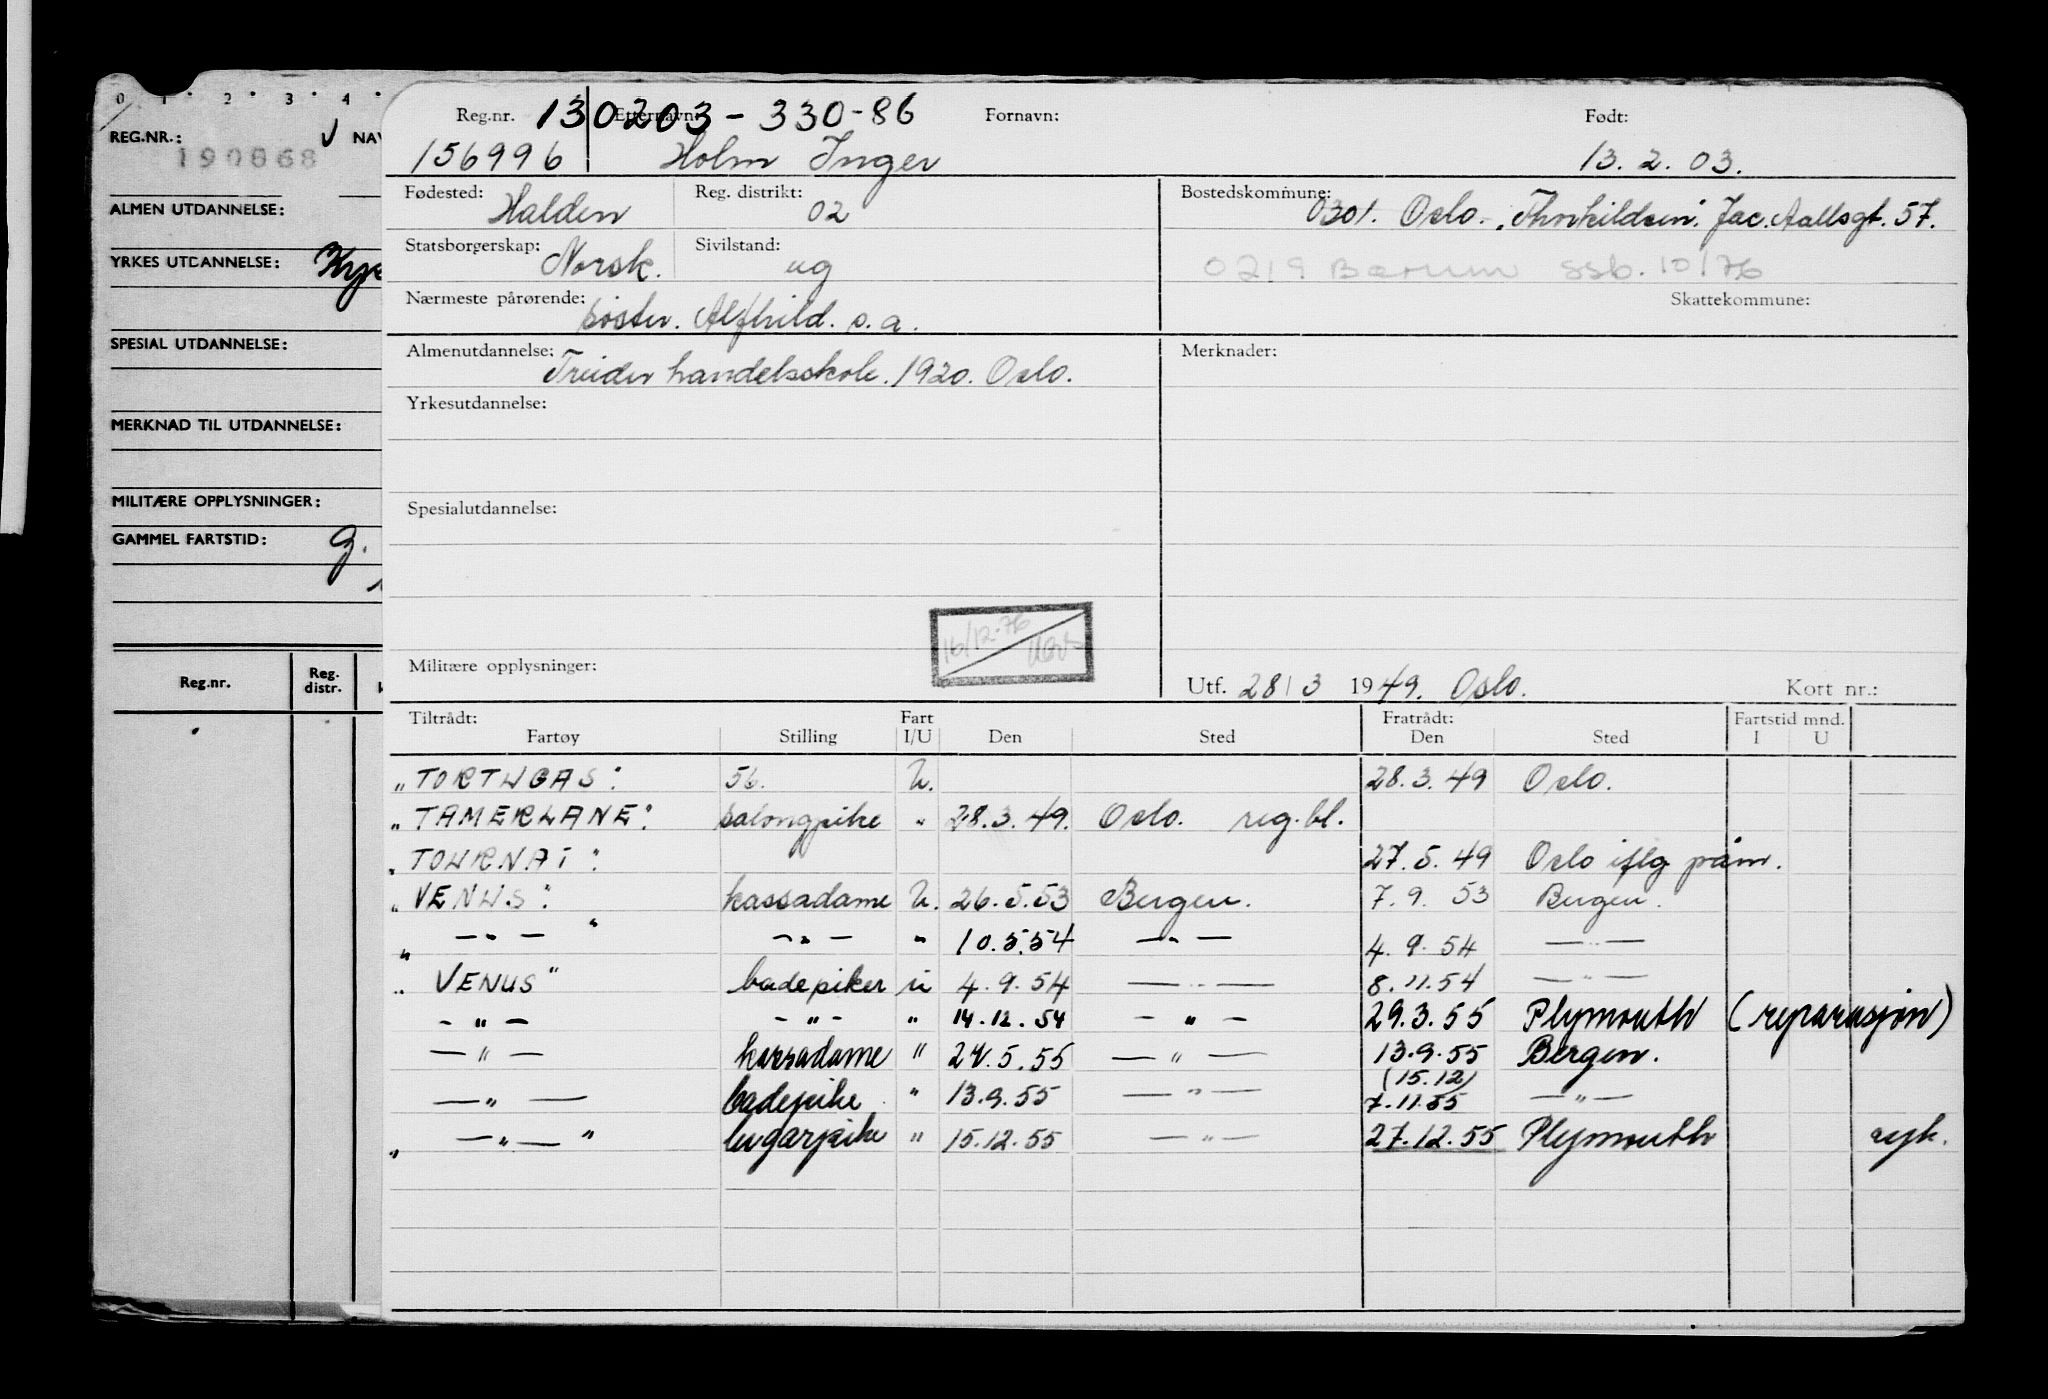 0 1 2 3 4
REG.NR.: NAV
190868
ALMEN UTDANNELSE:
YRKES UTDANNELSE:
SPESIAL UTDANNELSE:
MERKNAD TIL UTDANNELSE:
MILITÆRE OPPLYSNINGER:
GAMMEL FARTSTID: g.
Reg.nr. Reg. distr.
Reg.nr. 130203-330-86 Etternavn: Fornavn: Født:
156996 Holm Inger 13.2.03.
Fødested: Halden Reg. distrikt: 02 Bostedskommune: 0301. Oslo. "Thorkildsen". Jac. Aallsgt. 57.
Statsborgerskap: Norsk. Sivilstand: ug 0219 Bærum ssb. 10/76
Nærmeste pårørende: søster. Alfhild. s.a. Skattekommune:
Almenutdannelse: Treider handelsskole. 1920. Oslo. Merknader:
Yrkesutdannelse:
Spesialutdannelse:
16/12-76
Militære opplysninger: Utf. 28/3 1949. Oslo. Kort nr.:
Tiltrådt: Fart Fratrådt: Fartstid mnd.
Fartøy Stilling I/U Den Sted Den Sted I U
"TORTUGAS" 56. U. 28.3.49 Oslo.
"TAMERLANE" salongpike " 28.3.49. Oslo. reg.bl.
"TOURNAI" 27.5.49 Oslo iflg påm.
"VENUS" kassadame U. 26.5.53 Bergen. 7.9.53 Bergen.
" — " — " — " — " 10.5.54 — " — 4.9.54 — " —
"VENUS" badepiker u 4.9.54 — " — 8.11.54 — " —
— " — — " — " 14.12.54 — " — 29.3.55 Plymouth (reparasjon)
— " — kassadame " 24.5.55 — " — 13.9.55 Bergen.
(15.12)
— " — badepike " 13.9.55 — " — 7.11.55 — " —
" — " — " lugarpike " 15.12.55 — " — 27.12.55 Plymouth syk.